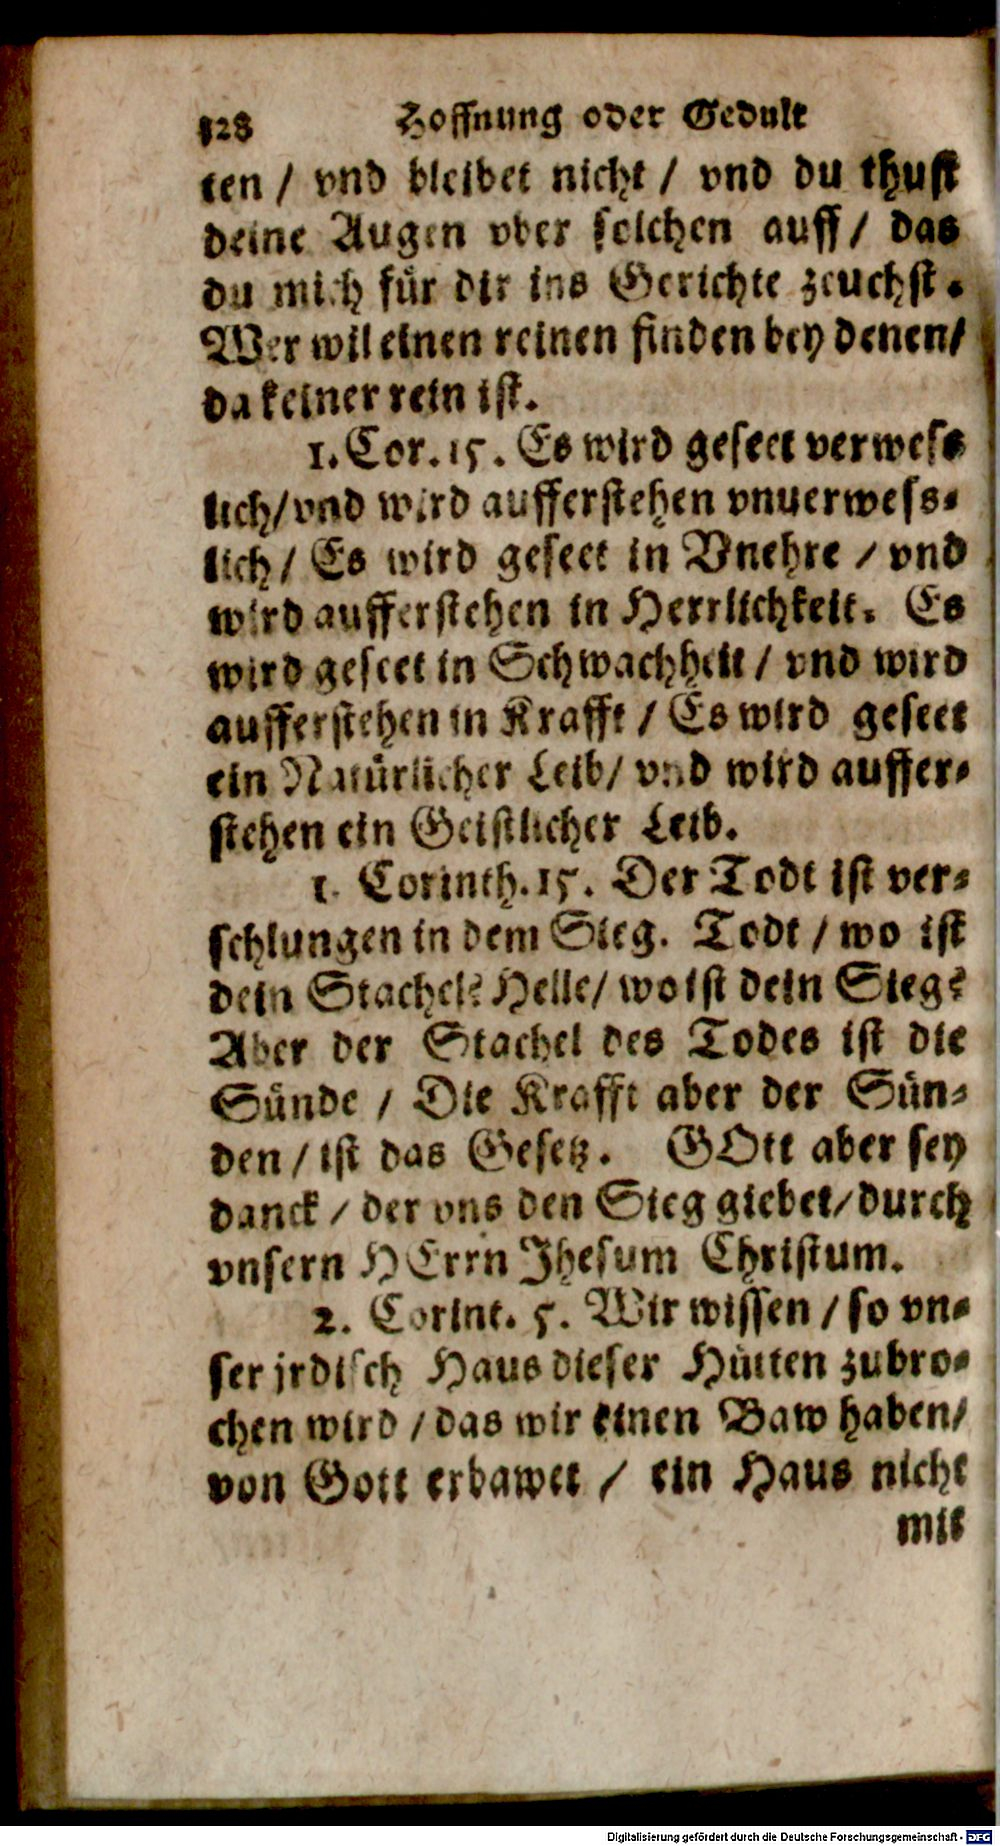 128 Hoffnung oder Gedult
ten / vnd bleibet nicht / vnd du thust
deine Augen vber solchen auff / das
du mich für dir ins Gerichte zeuchst.
Wer wil einen reinen finden bey denen/
da keiner rein ist.
1. Cor. 15. Es wird geseet verwes-
lich/ vnd wird aufferstehen vnuerwes-
lich / Es wird geseet in Vnehre / vnd
wird aufferstehen in Herrlichkeit. Es
wird geseet in Schwachheit / vnd wird
aufferstehen in Krafft / Es wird geseet
ein Natürlicher Leib/ vnd wird auffer-
stehen ein Geistlicher Leib.
1. Corinth. 15. Der Todt ist ver-
schlungen in dem Sieg. Todt / wo ist
dein Stachel? Helle/ wo ist dein Sieg?
Aber der Stachel des Todes ist die
Sünde / Die Krafft aber der Sün-
den / ist das Gesetz. GOtt aber sey
danck / der vns den Sieg giebet/ durch
vnsern HErrn Jhesum Christum.
2. Corint. 5. Wir wissen / so vn-
ser jrdisch Haus dieser Hütten zubro-
chen wird / das wir einen Baw haben/
von Gott erbawet / ein Haus nicht
mit
Digitalisierung gefördert durch die Deutsche Forschungsgemeinschaft - DFG